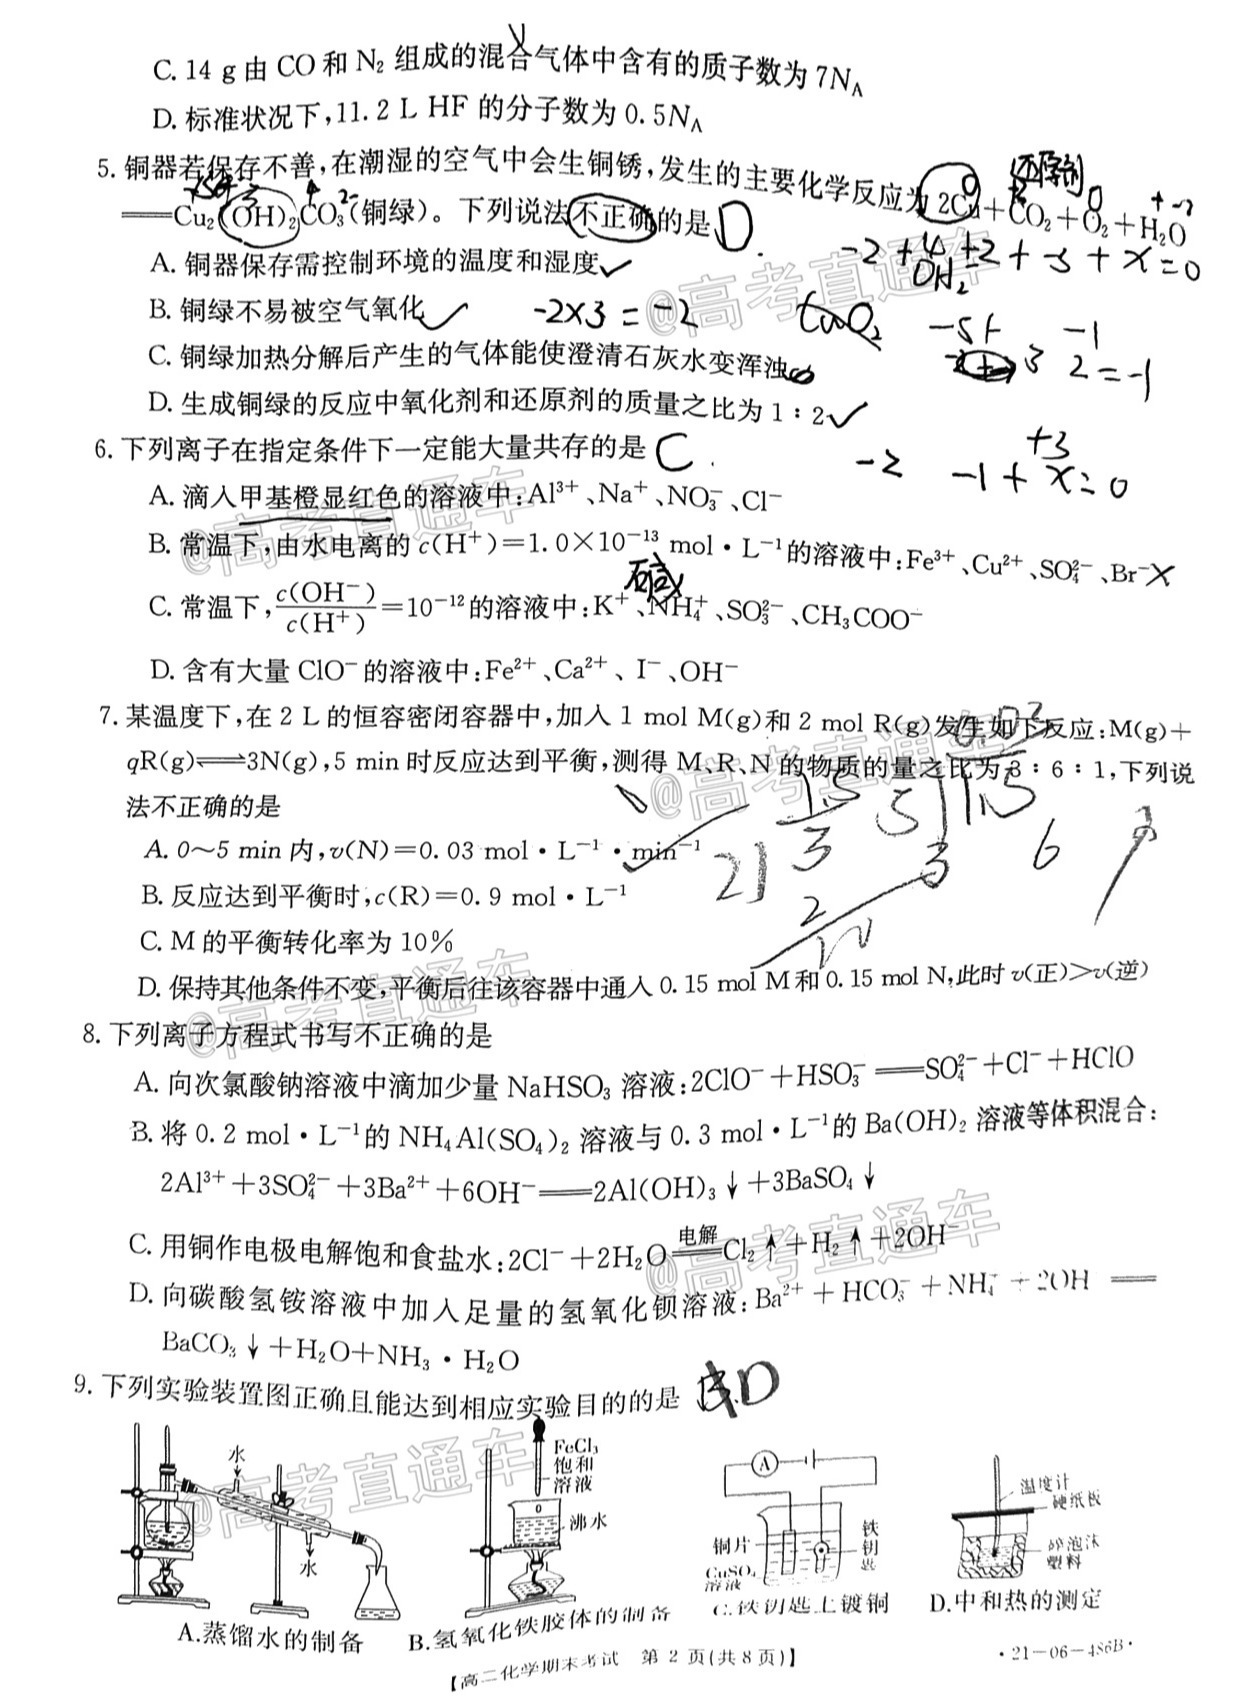 C. 14 g 由 CO 和 N₂ 组成的混合气体中含有的质子数为 7Nᴀ
D. 标准状况下,11.2 L HF 的分子数为 0.5Nᴀ
5. 铜器若保存不善,在潮湿的空气中会生铜锈,发生的主要化学反应为 2Cu+CO₂+O₂+H₂O
══Cu₂(OH)₂CO₃(铜绿)。下列说法不正确的是 D.
还原剂
-2+4+2+-3+x=0
A. 铜器保存需控制环境的温度和湿度✓
B. 铜绿不易被空气氧化✓ -2×3=-2
C. 铜绿加热分解后产生的气体能使澄清石灰水变浑浊
D. 生成铜绿的反应中氧化剂和还原剂的质量之比为 1∶2✓
6. 下列离子在指定条件下一定能大量共存的是 C.
-2 -1+x=0
+3
A. 滴入甲基橙显红色的溶液中:Al³⁺、Na⁺、NO₃⁻、Cl⁻
B. 常温下,由水电离的 c(H⁺)=1.0×10⁻¹³ mol·L⁻¹的溶液中:Fe³⁺、Cu²⁺、SO₄²⁻、Br⁻ X
碱
C. 常温下,c(OH⁻)/c(H⁺)=10⁻¹²的溶液中:K⁺、NH₄⁺、SO₃²⁻、CH₃COO⁻
D. 含有大量 ClO⁻的溶液中:Fe²⁺、Ca²⁺、I⁻、OH⁻
7. 某温度下,在 2 L 的恒容密闭容器中,加入 1 mol M(g)和 2 mol R(g)发生如下反应:M(g)+
qR(g)⇌3N(g),5 min 时反应达到平衡,测得 M、R、N 的物质的量之比为 3∶6∶1,下列说
法不正确的是
A. 0~5 min 内,v(N)=0.03 mol·L⁻¹·min⁻¹
B. 反应达到平衡时,c(R)=0.9 mol·L⁻¹
C. M 的平衡转化率为 10%
D. 保持其他条件不变,平衡后往该容器中通入 0.15 mol M 和 0.15 mol N,此时 v(正)>v(逆)
8. 下列离子方程式书写不正确的是
A. 向次氯酸钠溶液中滴加少量 NaHSO₃ 溶液:2ClO⁻+HSO₃⁻══SO₄²⁻+Cl⁻+HClO
B. 将 0.2 mol·L⁻¹的 NH₄Al(SO₄)₂ 溶液与 0.3 mol·L⁻¹的 Ba(OH)₂ 溶液等体积混合:
2Al³⁺+3SO₄²⁻+3Ba²⁺+6OH⁻══2Al(OH)₃↓+3BaSO₄↓
C. 用铜作电极电解饱和食盐水:2Cl⁻+2H₂O 电解══ Cl₂↑+H₂↑+2OH⁻
D. 向碳酸氢铵溶液中加入足量的氢氧化钡溶液:Ba²⁺+HCO₃⁻+NH₄⁺+2OH⁻══
BaCO₃↓+H₂O+NH₃·H₂O
9. 下列实验装置图正确且能达到相应实验目的的是 D
水
水
FeCl₃
饱和
溶液
沸水
A
铜片
CuSO₄
溶液
铁
钥
匙
温度计
硬纸板
碎泡沫
塑料
A.蒸馏水的制备
B.氢氧化铁胶体的制备
C.铁钥匙上镀铜
D.中和热的测定
【高二化学期末考试 第 2 页(共 8 页)】
·21-06-486B·
@高考直通车
@高考直通车
@高考直通车
@高考直通车
@高考直通车
@高考直通车